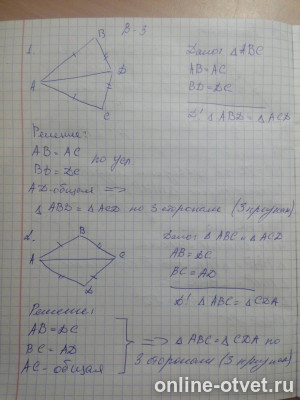 В-3
1.
B
A
D
C
Дано: △ABC
AB=AC
BD=DC
Д! △ABD=△ACD
Решение:
AB=AC
BD=DC по усл
AD-общая =>
△ABD=△ACD по 3 сторонам (3 признак)
2.
B
A
C
D
Дано: △ABC и △ACD
AB=DC
BC=AD
Д! △ABC=△CDA
Решение:
AB=DC
BC=AD
AC-общая
=> △ABC=△CDA по
3 сторонам (3 признак)
online-otvet.ru